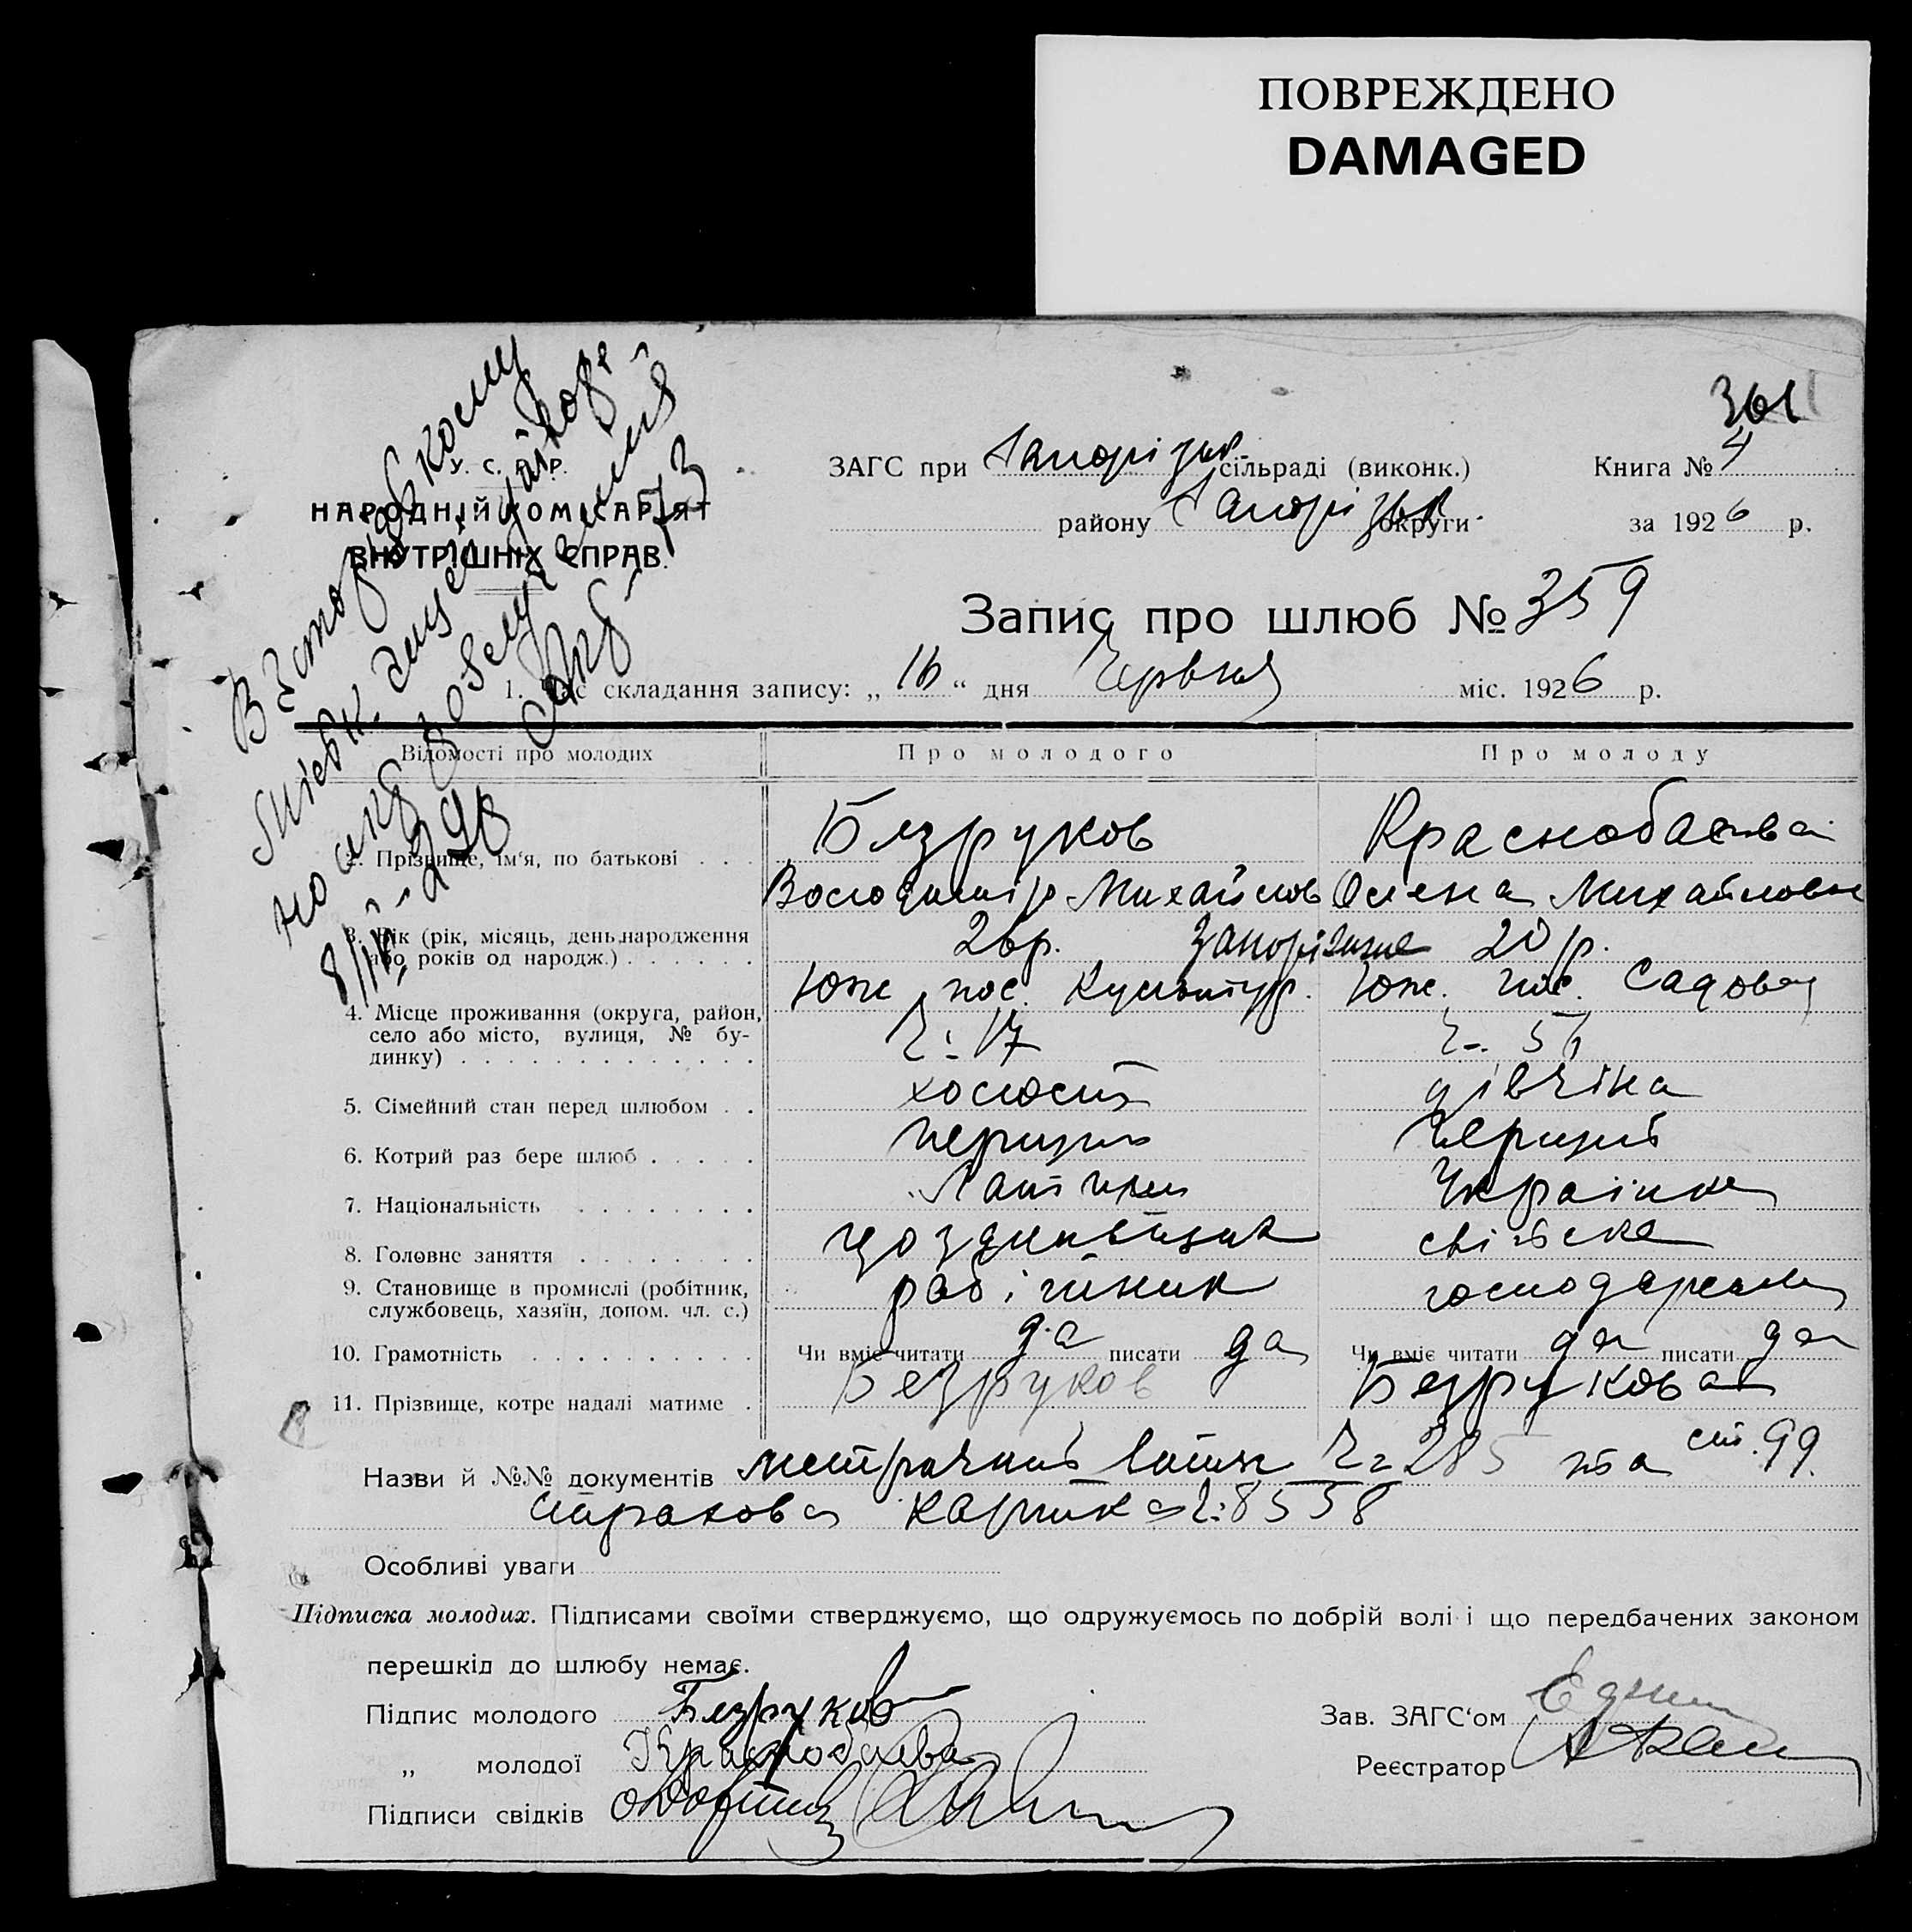 ПОВРЕЖДЕНО
DAMAGED
301
У. С. Р. Р.
НАРОДНІЙ КОМІСАРІЯТ
ВНУТРІШНІХ СПРАВ.
ЗАГС при Запорізьк. сільраді (виконк.) Книга № 4
району Запорізьк. округи за 1926 р.
Запис про шлюб № 359
1. Час складання запису: „ 16 “ дня Червня міс. 1926 р.
Відомості про молодих Про молодого Про молоду
2. Прізвище, ім‘я, по батькові . . . Безруков Краснобаєва
Володимір Михайлов Олена Михайловна
3. Вік (рік, місяць, день народження
або років од народж.) . . . . . . 26р. Запоріжже 20 р.
4. Місце проживання (округа, район,
село або місто, вулиця, № бу-
динку) . . . . . . . . . . . . Юж. пос. Культур. Юж. пос. Садова
Ч: 17 Ч-. 51
5. Сімейний стан перед шлюбом . . холост дівчіна
6. Котрий раз бере шлюб . . . . . перший перший
7. Національність . . . . . . . . Українка
8. Головне заняття . . . . . . . . свійське
9. Становище в промислі (робітник,
службовець, хазяїн, допом. чл. с.) робітник господарство
10. Грамотність . . . . . . . . . . Чи вміє читати да писати да Чи вміє читати да писати да
11. Прізвище, котре надалі матиме . Безруков Безрукова
Назви й №№ документів метричний витяг Ч= 285 та ст. 99.
страхова картка Ч: 8558
Особливі уваги
Підписка молодих. Підписами своїми стверджуємо, що одружуємось по добрій волі і що передбачених законом
перешкід до шлюбу немає.
Підпис молодого Безруков Зав. ЗАГС‘ом
„ молодої Краснобаєва Реєстратор
Підписи свідків